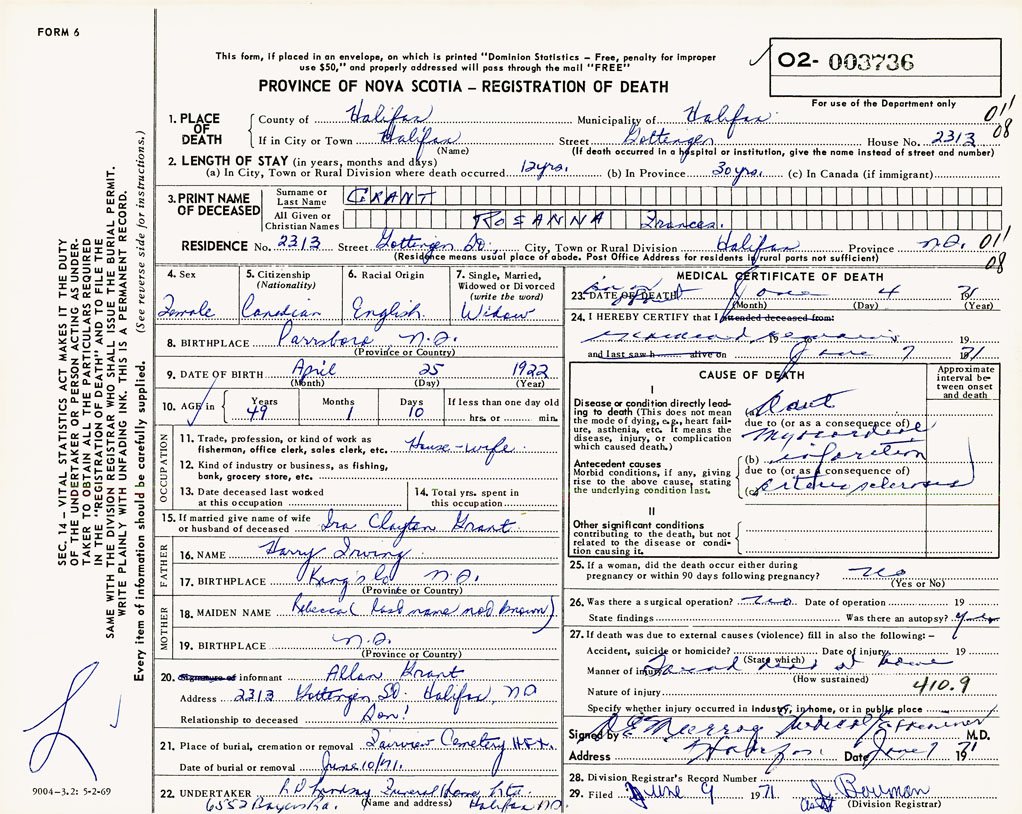 FORM 6
This form, if placed in an envelope, on which is printed "Dominion Statistics – Free, penalty for improper
use $50," and properly addressed will pass through the mail "FREE"
O2- 003736
PROVINCE OF NOVA SCOTIA – REGISTRATION OF DEATH
For use of the Department only
1. PLACE OF DEATH
County of Halifax Municipality of Halifax 011
If in City or Town Halifax Street Gottengen House No. 2313 08
(Name) (If death occurred in a hospital or institution, give the name instead of street and number)
2. LENGTH OF STAY (in years, months and days)
(a) In City, Town or Rural Division where death occurred 12 yrs. (b) In Province 30 yrs. (c) In Canada (if immigrant)
3. PRINT NAME OF DECEASED
Surname or Last Name GRANT
All Given or Christian Names ROSANNA Frances.
RESIDENCE No. 2313 Street Gottengen St. City, Town or Rural Division Halifax Province N.S. 011
(Residence means usual place of abode. Post Office Address for residents in rural parts not sufficient) 08
4. Sex
Female
5. Citizenship
(Nationality)
Canadian
6. Racial Origin
English
7. Single, Married,
Widowed or Divorced
(write the word)
Widow
8. BIRTHPLACE Parrsboro N.S.
(Province or Country)
9. DATE OF BIRTH April 25 1922
(Month) (Day) (Year)
10. AGE in Years 49 Months 1 Days 10 If less than one day old
hrs. or min.
OCCUPATION
11. Trade, profession, or kind of work as
fisherman, office clerk, sales clerk, etc. House-wife
12. Kind of industry or business, as fishing,
bank, grocery store, etc.
13. Date deceased last worked
at this occupation
14. Total yrs. spent in
this occupation
15. If married give name of wife
or husband of deceased Ira Clayton Grant
FATHER
16. NAME Harry Irving
17. BIRTHPLACE King's Co N.S.
(Province or Country)
MOTHER
18. MAIDEN NAME Rebecca (Last name not known)
19. BIRTHPLACE N.S.
(Province or Country)
20. Signature of informant Allan Grant
Address 2313 Gottengen St. Halifax, NS
Relationship to deceased Son!
21. Place of burial, cremation or removal Fairview Cemetery Hfx.
Date of burial or removal June 10/71.
22. UNDERTAKER Funeral Home Ltd.
(Name and address) Halifax NS.
6552
MEDICAL CERTIFICATE OF DEATH
23. DATE OF DEATH June 4 71
(Month) (Day) (Year)
24. I HEREBY CERTIFY that I attended deceased from:
19 19
and last saw h alive on June 7 1971
CAUSE OF DEATH
Approximate
interval be-
tween onset
and death
I
Disease or condition directly lead-
ing to death (This does not mean
the mode of dying, e.g., heart fail-
ure, asthenia, etc. It means the
disease, injury, or complication
which caused death.)
(a)
due to (or as a consequence of)
myocardial
Antecedent causes
Morbid conditions, if any, giving
rise to the above cause, stating
the underlying condition last.
(b) infarction
due to (or as a consequence of)
(c)
II
Other significant conditions
contributing to the death, but not
related to the disease or condi-
tion causing it.
25. If a woman, did the death occur either during
pregnancy or within 90 days following pregnancy? no
(Yes or No)
26. Was there a surgical operation? no Date of operation 19
State findings Was there an autopsy? yes
27. If death was due to external causes (violence) fill in also the following:–
Accident, suicide or homicide? Date of injury 19
(State which)
Manner of injury Found dead at home
(How sustained)
Nature of injury 410.9
Specify whether injury occurred in Industry, in home, or in public place
Signed by Medical Examiner M.D.
Address Halifax Date June 7 1971
28. Division Registrar's Record Number
29. Filed June 9 1971 J. Bowman
Asst (Division Registrar)
SEC. 14 – VITAL STATISTICS ACT MAKES IT THE DUTY
OF THE UNDERTAKER OR PERSON ACTING AS UNDER-
TAKER TO OBTAIN ALL THE PARTICULARS REQUIRED
IN THE "REGISTRATION OF DEATH" AND TO FILE THE
SAME WITH THE DIVISION REGISTRAR WHO SHALL ISSUE THE BURIAL PERMIT.
WRITE PLAINLY WITH UNFADING INK. THIS IS A PERMANENT RECORD.
Every item of information should be carefully supplied. (See reverse side for instructions.)
9004–3.2: 5-2-69